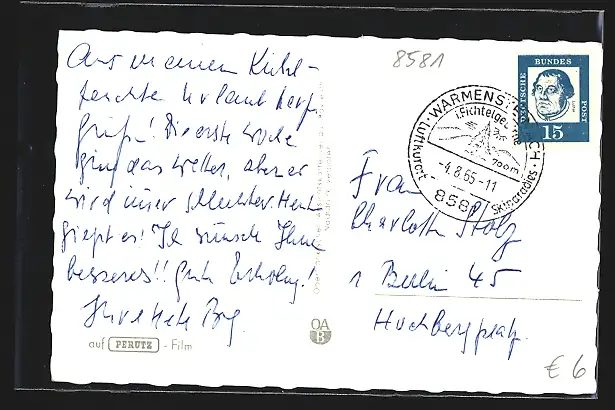 Aus meinem Kühl-
feuchten Urlaub herzl.
Grüße! Die erste Woche
ging das Wetter, aber er
wird immer schlechter. Heute
gießt es! Ich wünsche Ihnen
besseres!! Gute Erholung!
Ihre Hete
auf PERUTZ - Film
OA
B
8581
WARMENSTEINACH
i. Fichtelgebirge
700m
Luftkurort
Skiparadies
-4.8.65-11
8581
DEUTSCHE
BUNDES
POST
15
Frau
Charlotte Stolz
1 Berlin 45
€ 6